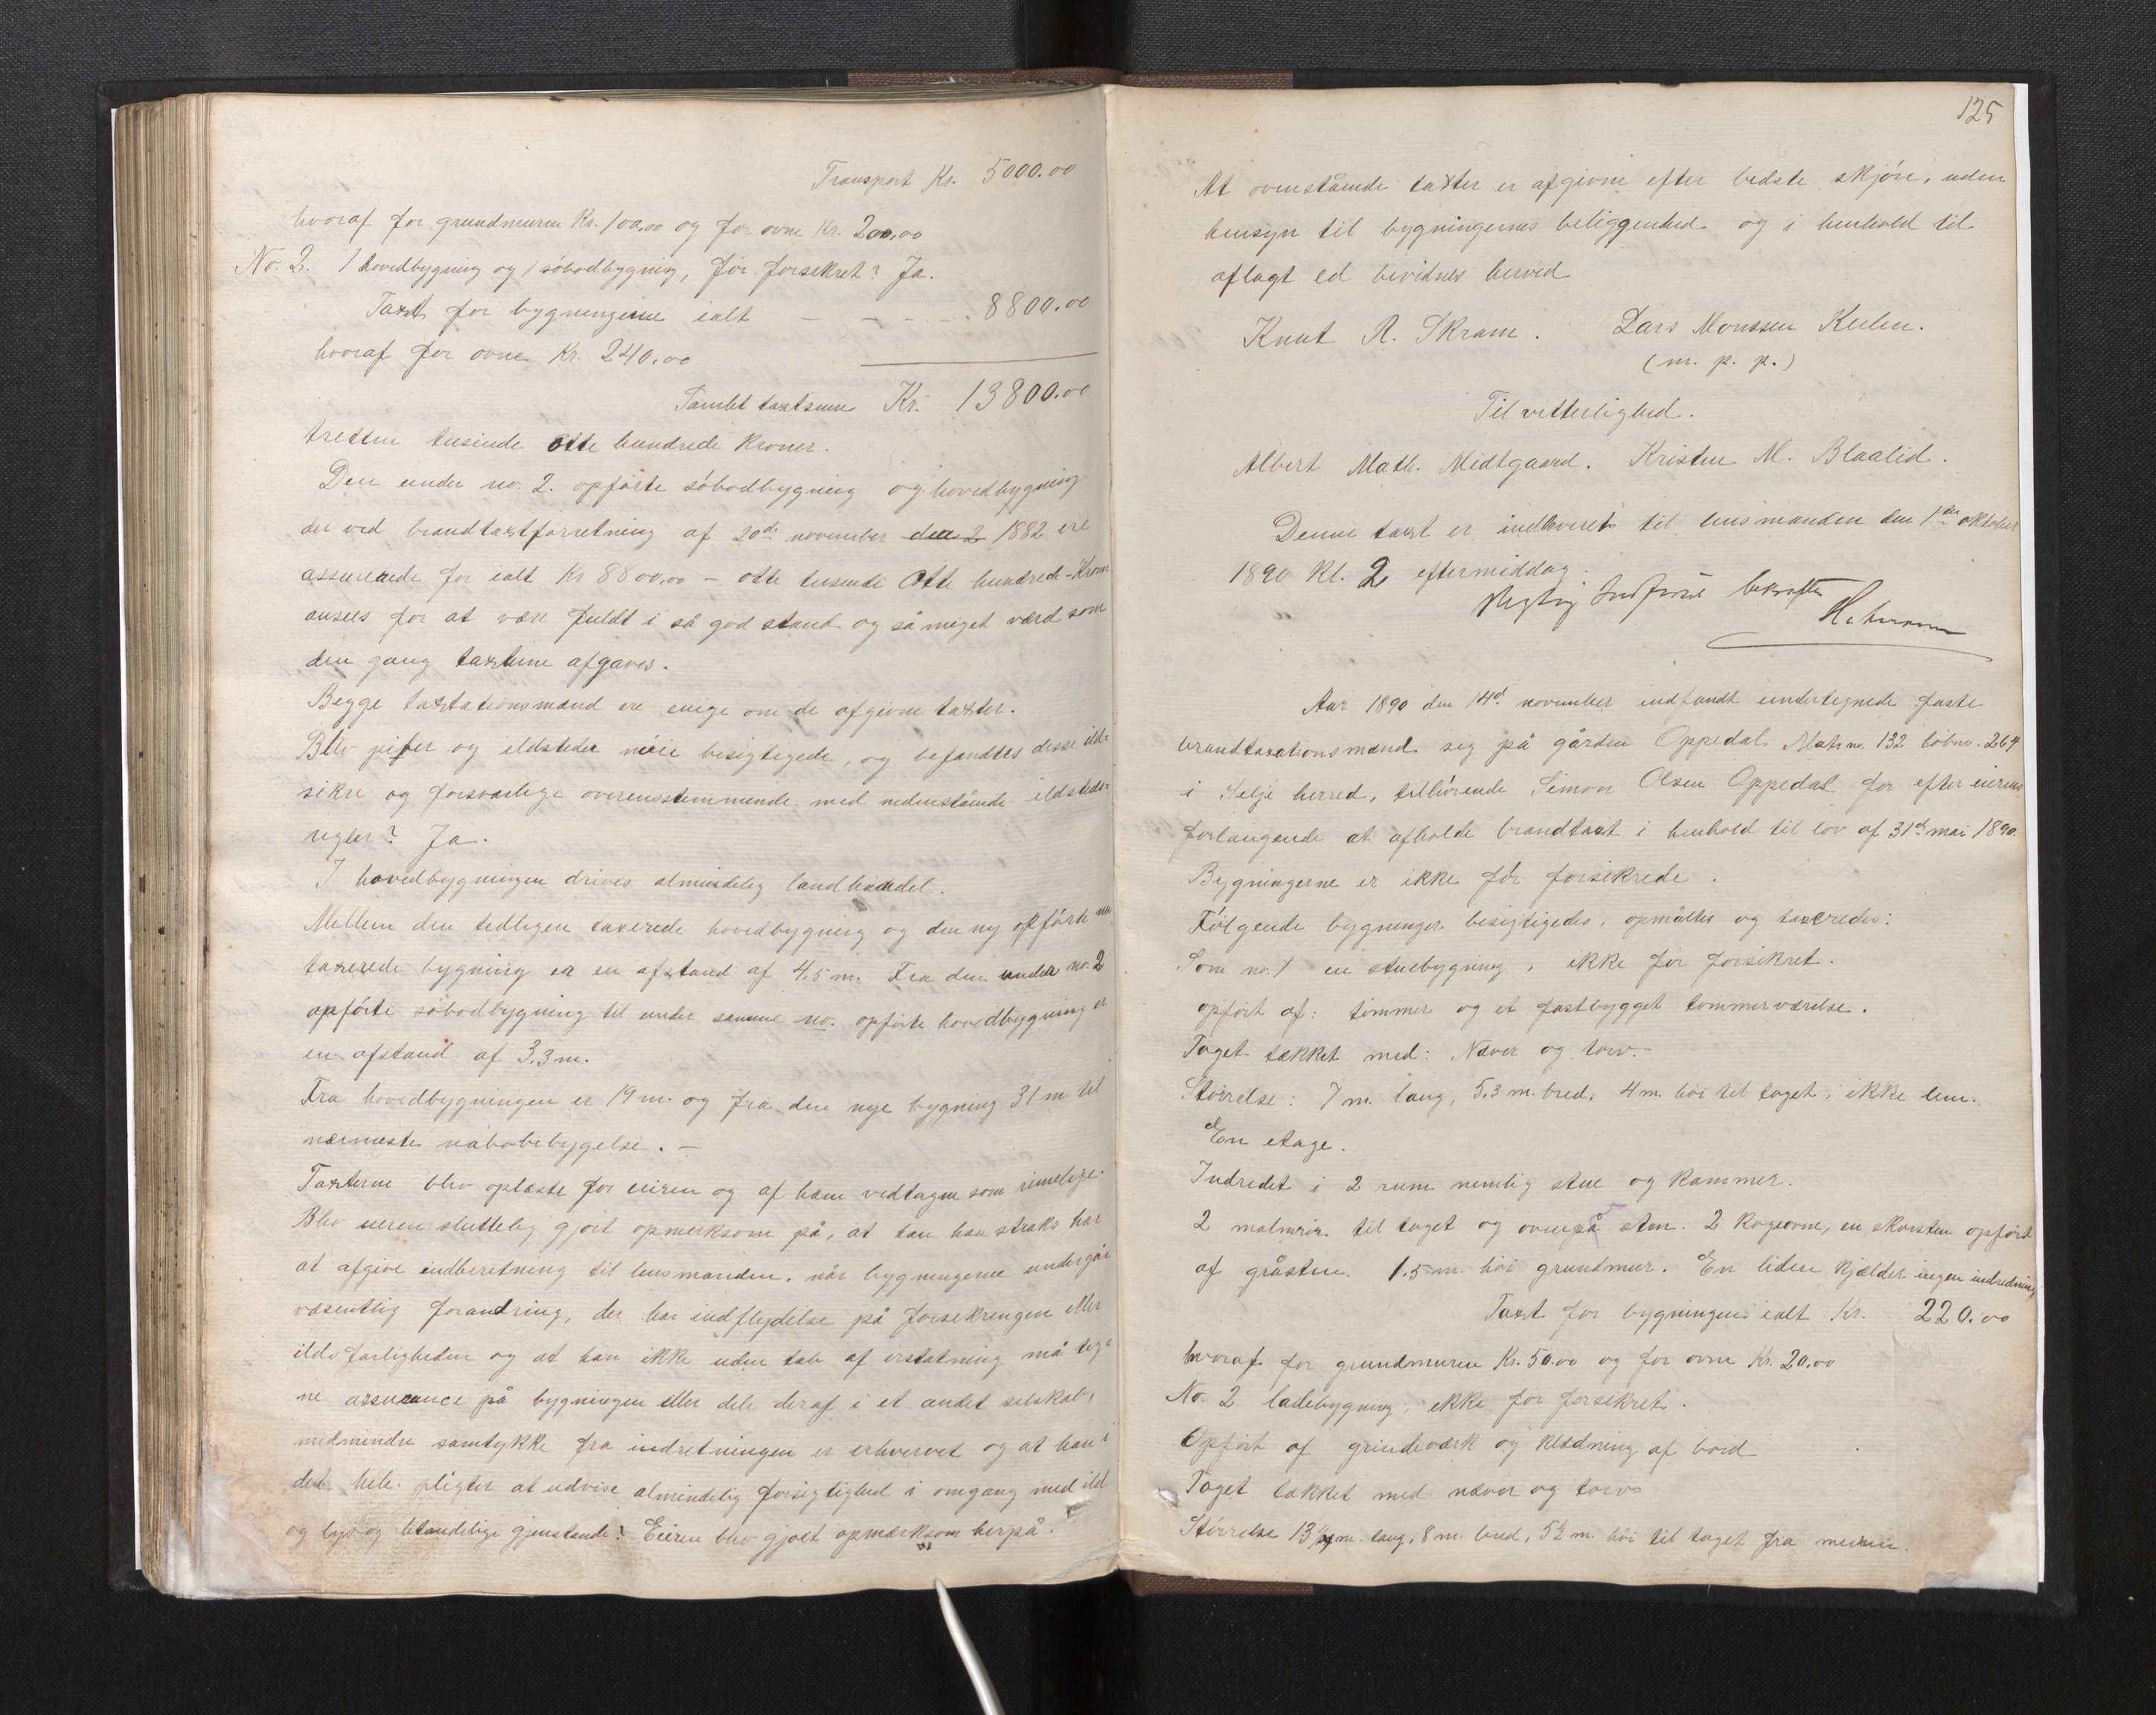 Transport Kr. 5000.00
hvoraf for grundmuren Kr. 100,00 og for ovne Kr. 200,00
No. 2. 1 hovedbygning og 1 söbodbygning, för forsekret? Ja.
Taxt for bygningerne ialt — — — — 8800.00
hvoraf for ovne Kr. 240.00
Samlet taxtsum Kr. 13800.00
tretten tusinde otte hundrede Kroner.
Den under no. 2. opförte söbodbygning og hovedbygning
der ved brandtaxtforretning af 20de november den 2 1882 ere
assurerede for ialt Kr 8800.00 — otte tusinde Otte hundrede Kroner
ansees for at være fuldt i så god stand og så meget værd som
den gang taxterne afgaves.
Begge taxtationsmænd ere enige om de afgivne taxter.
Blev piber og ildsteder nöie besigtigede, og befandtes disse ild-
sikre og forsvarlige overensstemmende med nedenstående ildsteds-
regler? Ja.
I hovedbygningen drives almindelig landhandel.
Mellem den tidligen taxerede hovedbygning og den ny opförte nu
taxerede bygning er en afstand af 4.5 m. Fra den under no. 2
opförte söbodbygning til under samme no. opförte hovedbygning er
en afstand af 3.3 m.
Fra hovedbygningen er 19 m. og fra den nye bygning 31 m til
nærmeste nabobebygelse. —
Taxterne blev oplæste for eieren og af ham vedtagne som rimelige.
Blev eieren sluttelig gjort opmerksom på, at han straks har
at afgive indberetning til lensmanden, når bygningerne undergår
væsentlig forandring, der har indflydelse på forsekringen eller
ildsfarligheden og at han ikke uden tab af erstatning må teg-
ne assurance på bygningen eller dele deraf i et andet selskab,
medmindre samtykke fra indretningen er erhvervet og at han i
det hele pligter at udvise almindelig forsigtighed i omgang med ild
og lys og letændelige gjenstande? Eieren blev gjort opmærksom herpå.
125
At ovenstående taxter er afgivne efter bedste skjön, uden
hensyn til bygningernes beliggenhed og i henhold til
aflagt ed bevidnes herved
Knut R. Skram. Lars Monssen Keilen.
(m. p. p.)
Til vitterlighed.
Albert Math. Midtgaard. Kristen M. Blaalid.
Denne taxt er indleveret til lensmanden den 1ste oktober
1890 Kl. 2 eftermiddag.
Rigtig Indført bekræftes
Aar 1890 den 14de november indfandt undertegnede faste
brandtaxationsmænd sig på gården Oppedal Matr no. 132 löbno. 264
i Selje herred, tilhörende Simon Olsen Oppedal for efter eierens
forlangende at afholde brandtaxt i henhold til lov af 31de mai 1890.
Bygningerne er ikke för forsikrede.
Fölgende bygninger besigtigedes, opmåltes og taxeredes:
Som no. 1 en stuebygning, ikke för forsikret.
opfört af: tömmer og et fastbygget tømmerværelse.
Taget tækket med: Næver og torv.
Störrelse: 7 m. lang, 5.3 m. bred, 4 m. höi til taget, ikke
En etage.
Indredet i 2 rum nemlig stue og kammer.
2 malmrör til taget og ovenpå sten. 2 Kogeovne, en skorsten opfört
af gråsten. 1.5 m. höi grundmur. En liden kjælder ingen indredning
Taxt for bygningen ialt Kr. 220.00
hvoraf for grundmuren Kr. 50.00 og for ovne Kr. 20.00
No. 2 ladebygning, ikke för forsekret.
Opfört af grindværk og klædning af bord
Taget tækket med næver og torv
Störrelse 13 1/4 m. lang, 8 m. bred, 5½ m. höi til taget fra